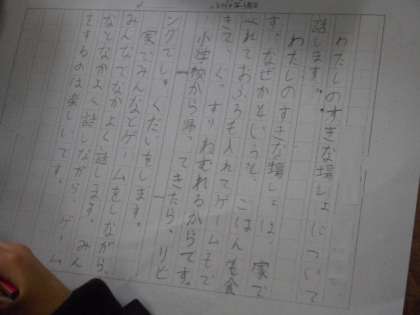 わたしのすきな場しょについて
話します。
わたしのすきな場しょは、家で
す。なぜかというと、ごはんも食
べれておふろも入れてゲームもで
きて、ぐっすりねむれるからです。
小学校から帰ってきたら、リビ
ングで
家でみんなとゲームをしながら、
みんなでなかよく話します。みん
なとなかよく話しながら、ゲーム
をするのは楽しいです。